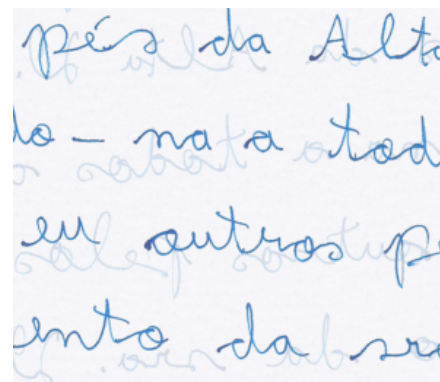 pés da Alta
do - nata a tod
eu outros pe
ento da sra